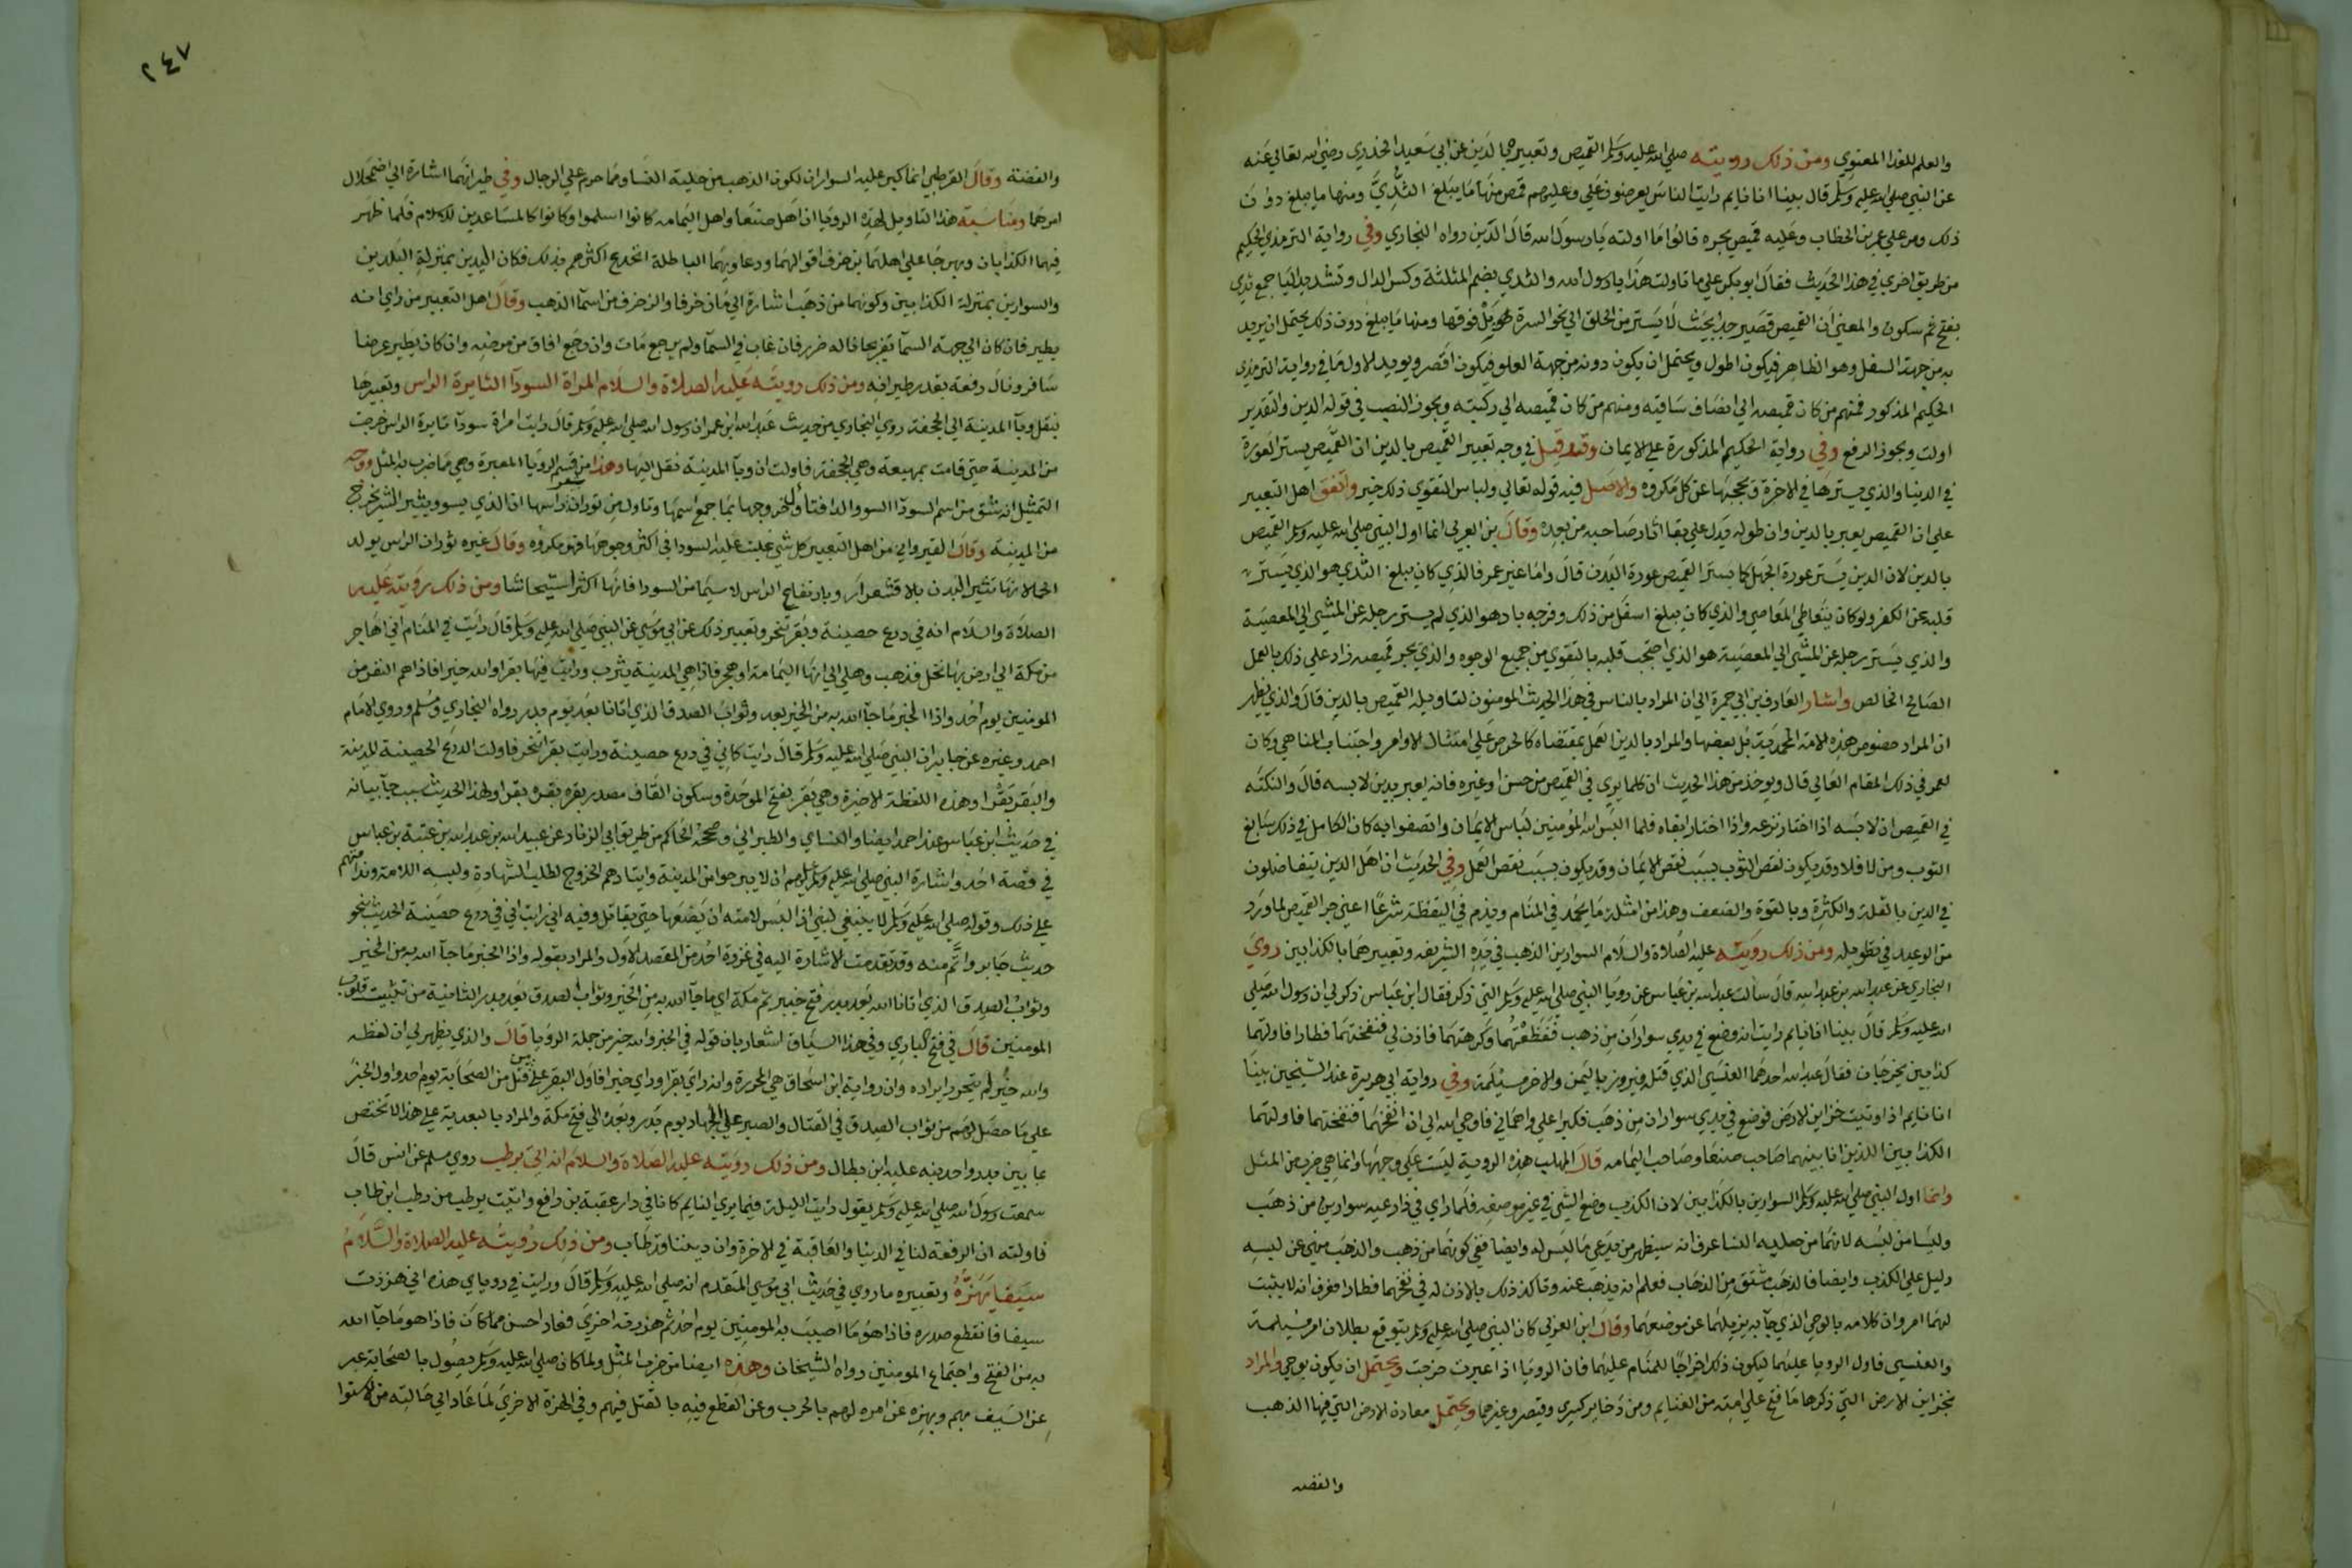 والعلم للغذا المعنوي ومن ذلك رويته صلي الله عليه وسلم القميص وتعبيره بالدين عن ابي سعيد الخدري رضي الله تعالي عنه
عن النبي صلي الله عليه وسلم قال بينا انا نايم رايت الناس يعرضون علي وعليهم قمص منها ما يبلغ الثدي ومنها ما يبلغ دون
ذلك ومر علي عمر بن الخطاب وعليه قميص يجره قالوا ما اولته يا رسول الله قال الدين رواه البخاري وفي رواية الترمذي الحكيم
من طريق اخري في هذا الحديث فقال ابو بكر علي ما تاولت هذا يا رسول الله والثدي بضم المثلثة وكسر الدال وتشديد اليا جمع ثدي
بفتح ثم سكون والمعني ان القميص قصير جدا بحيث لا يستر من الحلق الي نحو السرة بل فوقها ومنها ما يبلغ دون ذلك يحتمل ان يريد
به من جهة السفل وهو الظاهر فيكون اطول ويحتمل ان يكون دونه من جهة العلو فيكون اقصر ويويد الاول ما في رواية الترمذي
الحكيم المذكور فمنهم من كان قميصه الي انصاف ساقيه ومنهم من كان قميصه الي ركبته ويجوز النصب في قوله الدين والتقدير
اولت ويجوز الرفع وفي رواية الحكيم المذكورة علي الايمان وقد قيل في وجه تعبير القميص بالدين ان القميص يستر العورة
في الدنيا والذي يسترها في الاخرة ويحجبها عن كل مكروه والاصل فيه قوله تعالي ولباس التقوي ذلك خير واتفق اهل التعبير
علي ان القميص يعبر بالدين وان طوله يدل علي بقا اثار صاحبه من بعده وقال بن العربي انما اول النبي صلي الله عليه وسلم القميص
بالدين لان الدين يستر عورة الجهل كما يستر القميص عورة البدن قال واما غير عمر فالذي كان يبلغ الثدي هو الذي يستر
قلبه عن الكفر ولو كان يتعاطي المعاصي والذي كان يبلغ اسفل من ذلك وفرجه باد هو الذي لم يستر رجله عن المشي الي المعصية
والذي يستر رجله عن المشي الي المعصية هو الذي احتجب قلبه بالتقوي من جميع الوجوه والذي يجر قميصه زاد علي ذلك بالعمل
الصالح الخالص واشار العارف بن ابي جمرة الي ان المراد بالناس في هذا الحديث المومنون لتاويله القميص بالدين قال والذي يظهر
ان المراد خصوص هذه الامة المحمدية بل بعضها والمراد بالدين العمل بمقتضاه كالحرص علي امتثال الاوامر واجتناب المناهي وكان
لعمر في ذلك المقام العالي قال ويوخذ من هذا الحديث ان كلما يري في القميص من حسن او غيره فانه يعبر بدين لابسه قال والنكته
في القميص ان لابسه اذا اختار نزعه واذا اختار ابقاه فلما البس الله المومنين لباس الايمان واتصفوا به كان الكامل في ذلك سابغ
الثوب ومن لا فلا وقد يكون نقص الثوب بسبب نقص الايمان وقد يكون بسبب نقص العمل وفي الحديث ان اهل الدين يتفاضلون
في الدين بالقلة والكثرة وبالقوة والضعف وهذا من امثلة ما يحمد في المنام ويذم في اليقظة شرعا اعني جر القميص لما ورد
من الوعيد في تطويله ومن ذلك رويته عليه الصلاة والسلام السوارين الذهب في يده الشريفه وتعبيرهما بالكذابين روي
البخاري عن عبيد الله بن عبد الله قال سالت عبد الله بن عباس عن رويا النبي صلي الله عليه وسلم التي ذكر فقال ابن عباس ذكر لي ان رسول الله صلي
الله عليه وسلم قال بينا انا نايم رايت انه وضع في يدي سواران من ذهب ففظعتهما وكرهتهما فاذن لي فنفختهما فطارا فاولتهما
كذابين يخرجان فقال عبيد الله احدهما العنسي الذي قتله فيروز باليمن والاخر مسيلمة وفي رواية ابي هريرة عند الشيخين بينا
انا نايم اذ اوتيت خزاين الارض فوضع في يدي سواران من ذهب فكبرا علي واهماني فاوحي الله الي ان انفخهما فنفختهما فاولتهما
الكذابين اللذين انا بينهما صاحب صنعا وصاحب اليمامه قال المهلب هذه الروية ليست علي وجهها وانما هي ضرب من المثل
وانما اول النبي صلي الله عليه وسلم السوارين بالكذابين لان الكذب وضع الشي في غير موضعه فلما راي في ذراعيه سوارين من ذهب
وليسا من لبسه لانهما من حلية النسا عرف انه سيظهر من يدعي ما ليس له وايضا ففي كونهما من ذهب والذهب منهي عن لبسه
دليل علي الكذب وايضا فالذهب مشتق من الذهاب فعلم انه يذهب عنه وتاكد ذلك بالاذن له في نفخهما فطارا فعرف انه لا يثبت
لهما امر وان كلامه بالوحي الذي جا به يزيلهما عن موضعهما وقال ابن العربي كان النبي صلي الله عليه وسلم يتوقع بطلان امر مسيلمة
والعنسي فاول الرويا عليهما ليكون ذلك اخراجا للمنام عليهما فان الرويا اذا عبرت خرجت ويحتمل ان يكون بوحي والمراد
بخزاين الارض التي ذكرها ما فتح علي امته من الغنايم ومن ذخاير كسري وقيصر وغيرهما ويحتمل معادن الارض التي فيها الذهب
والفضه
٢٤٧
والفضة وقال القرطبي انما كبر عليه السواران لكون الذهب من حلية النسا ومما حرم علي الرجال وفي طيرانهما اشارة الي اضمحلال
امرهما ومناسبة هذا التاويل لهذه الرويا ان اهل صنعا واهل اليمامه كانوا اسلموا وكانوا كالمساعدين للاسلام فلما ظهر
فيهما الكذابان وبهرجا علي اهلهما بزخرف اقوالهما ودعاويهما الباطلة انخدع اكثرهم بذلك فكان اليدين بمنزلة البلدين
والسوارين بمنزلة الكذابين وكونهما من ذهب اشارة الي ما زخرفا والزخرف من اسما الذهب وقال اهل التعبير من راي انه
يطير فان كان الي جهة السما تعريجا ناله ضرر فان غاب في السما ولم يرجع مات وان رجع افاق من مرضه وان كان يطير عرضا
سافر ونال رفعة بقدر طيرانه ومن ذلك رويته عليه الصلاة والسلام المراة السودا الثايرة الراس وتعبيرها
بنقل وبا المدينة الي الجحفة روي البخاري من حديث عبد الله ابن عمر ان رسول الله صلي الله عليه وسلم قال رايت امراة سودا ثايرة الراس خرجت
من المدينة حتي قامت بمهيعة وهي الجحفة فاولت ان وبا المدينة نقل اليها وهذا من قسم الرويا المعبرة وهي مما ضرب به المثل ووجه
التمثيل انه شق من اسم السودا السوء والدا فتاول خروجها بما جمع اسمها وتاول من ثوران شعر راسها ان الذي يسوء ويثير الشر يخرج
من المدينة وقال القيرواني من اهل التعبير كل شي غلبت عليه السودا في اكثر وجوهها فهو مكروه وقال غيره ثوران الراس يولد
الحمي لانها تثير البدن بالاقشعرار وبارتفاع الراس لا سيما من السودا فانها اكثر استيحاشا ومن ذلك رويته عليه
الصلاة والسلام انه في درع حصينة وبقر تنحر وتعبير ذلك عن ابي موسي عن النبي صلي الله عليه وسلم قال رايت في المنام اني اهاجر
من مكة الي ارض بها نخل فذهب وهلي الي انها اليمامة او هجر فاذا هي المدينة يثرب ورايت فيها بقرا والله خير فاذا هم النفر من
المومنين يوم احد واذا الخير ما جا الله به من الخير بعد وثواب الصدق الذي اتانا بعد يوم بدر رواه البخاري ومسلم وروي الامام
احمد وغيره عن جابر ان النبي صلي الله عليه وسلم قال رايت كاني في درع حصينة ورايت بقرا تنحر فاولت الدرع الحصينة المدينة
والبقر بقرا وهذه اللفظة الاخيرة وهي بقر بفتح الموحدة وسكون القاف مصدر بقره يبقره بقرا ولهذا الحديث سبب جا بيانه
في حديث ابن عباس عند احمد ايضا والنساي والطبراني وصححه الحاكم من طريق ابي الزناد عن عبيد الله بن عبد الله بن عتبة بن عباس
في قصة احد واشارة النبي صلي الله عليه وسلم عليهم ان لا يبرحوا من المدينة وايثارهم الخروج لطلب الشهادة ولبسه اللامة وندامتهم
علي ذلك وقوله صلي الله عليه وسلم لا ينبغي لنبي اذا لبس لامته ان يضعها حتي يقاتل وفيه اني رايت اني في درع حصينة الحديث بنحو
حديث جابر واتم منه وقد تقدمت الاشارة اليه في غزوة احد من المقصد الاول والمراد بقوله واذا الخير ما جا الله به من الخير
وثواب الصدق الذي اتانا الله بعد بدر فتح خيبر ثم مكة اي ما جا الله به من الخير وثواب الصدق بعد بدر الثانية من تثبيت قلوب
المومنين قال في فتح الباري وفي هذا السياق اشعار بان قوله في الخبر والله خير من جملة الرويا قال والذي يظهر لي ان لفظه
والله خير لم يتحرر ايراده وان رواية ابن اسحاق هي المحررة وانه راي بقرا وراي خيرا فاول البقر علي من قتل من الصحابة يوم احد واول الخير
علي ما حصل لهم من ثواب الصدق في القتال والصبر علي الجهاد يوم بدر وبعده الي فتح مكة والمراد بالبعدية علي هذا لا تختص
بما بين بدر واحد نبه عليه ابن بطال ومن ذلك رويته عليه الصلاة والسلام انه اتي برطب روي مسلم عن انس قال
سمعت رسول الله صلي الله عليه وسلم يقول رايت الليلة فيما يري النايم كانا في دار عقبة بن رافع واتيت برطب من رطب ابن طاب
فاولته ان الرفعة لنا في الدنيا والعاقبة في الاخرة وان ديننا قد طاب ومن ذلك رويته عليه الصلاة والسلام
سيفا يهزه وتعبيره ما روي في حديث ابي موسي المتقدم انه صلي الله عليه وسلم قال ورايت في روياي هذه اني هززت
سيفا فانقطع صدره فاذا هو ما اصيب به المومنين يوم احد ثم هززته اخري فعاد احسن مما كان فاذا هو ما جا الله
به من الفتح واجتماع المومنين رواه الشيخان وهذه ايضا من ضرب المثل ولما كان صلي الله عليه وسلم يصول بالصحابة عبر
عن السيف بهم وبهزه عن امره لهم بالحرب وعن القطع فيه بالقتل فيهم وفي الهزة الاخري لما عاد الي حالته من الاستوا